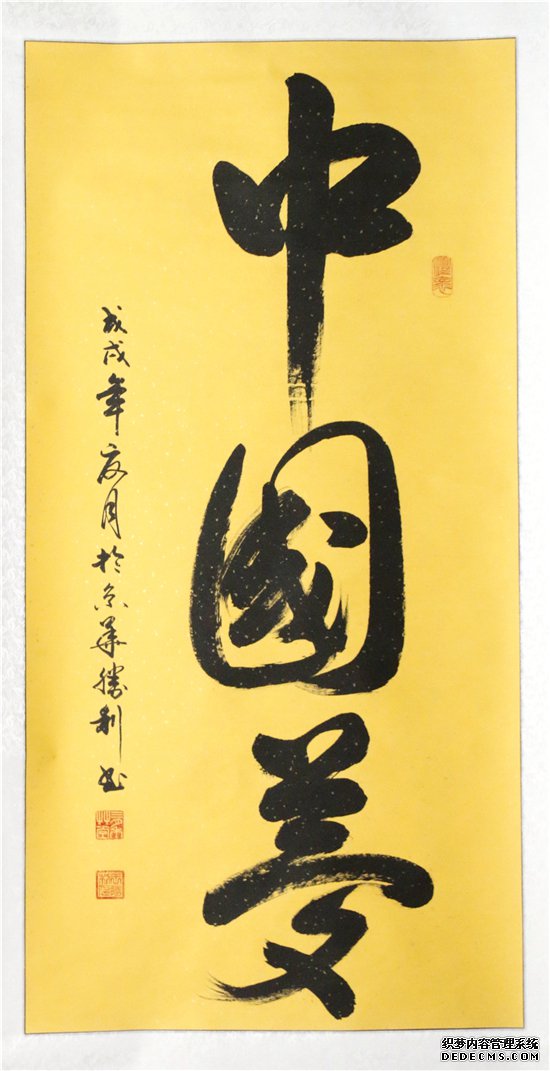 中國夢
戊戌年夏月於京華勝利书
织梦内容管理系统
DEDECMS.COM